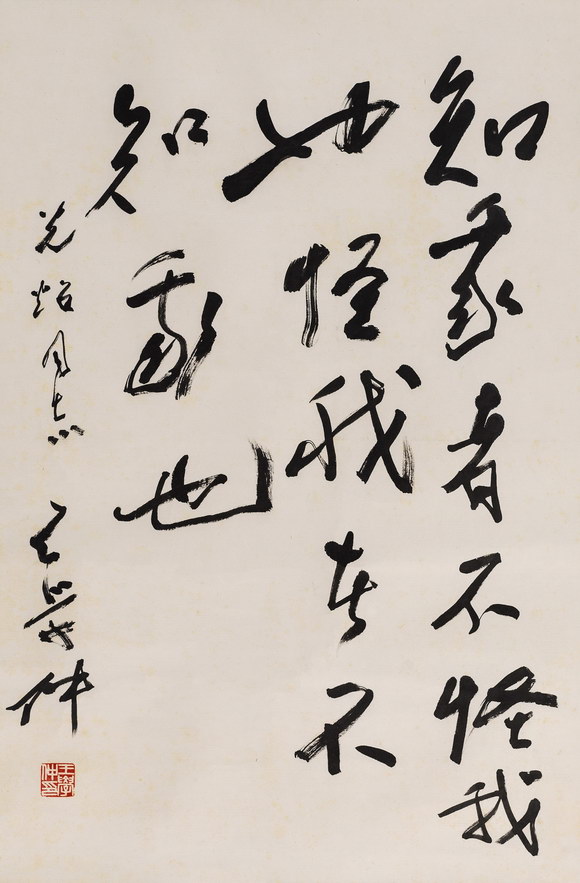 知我者不怪我
也怪我者不
知我也
光炤同志 王學仲
王學仲印